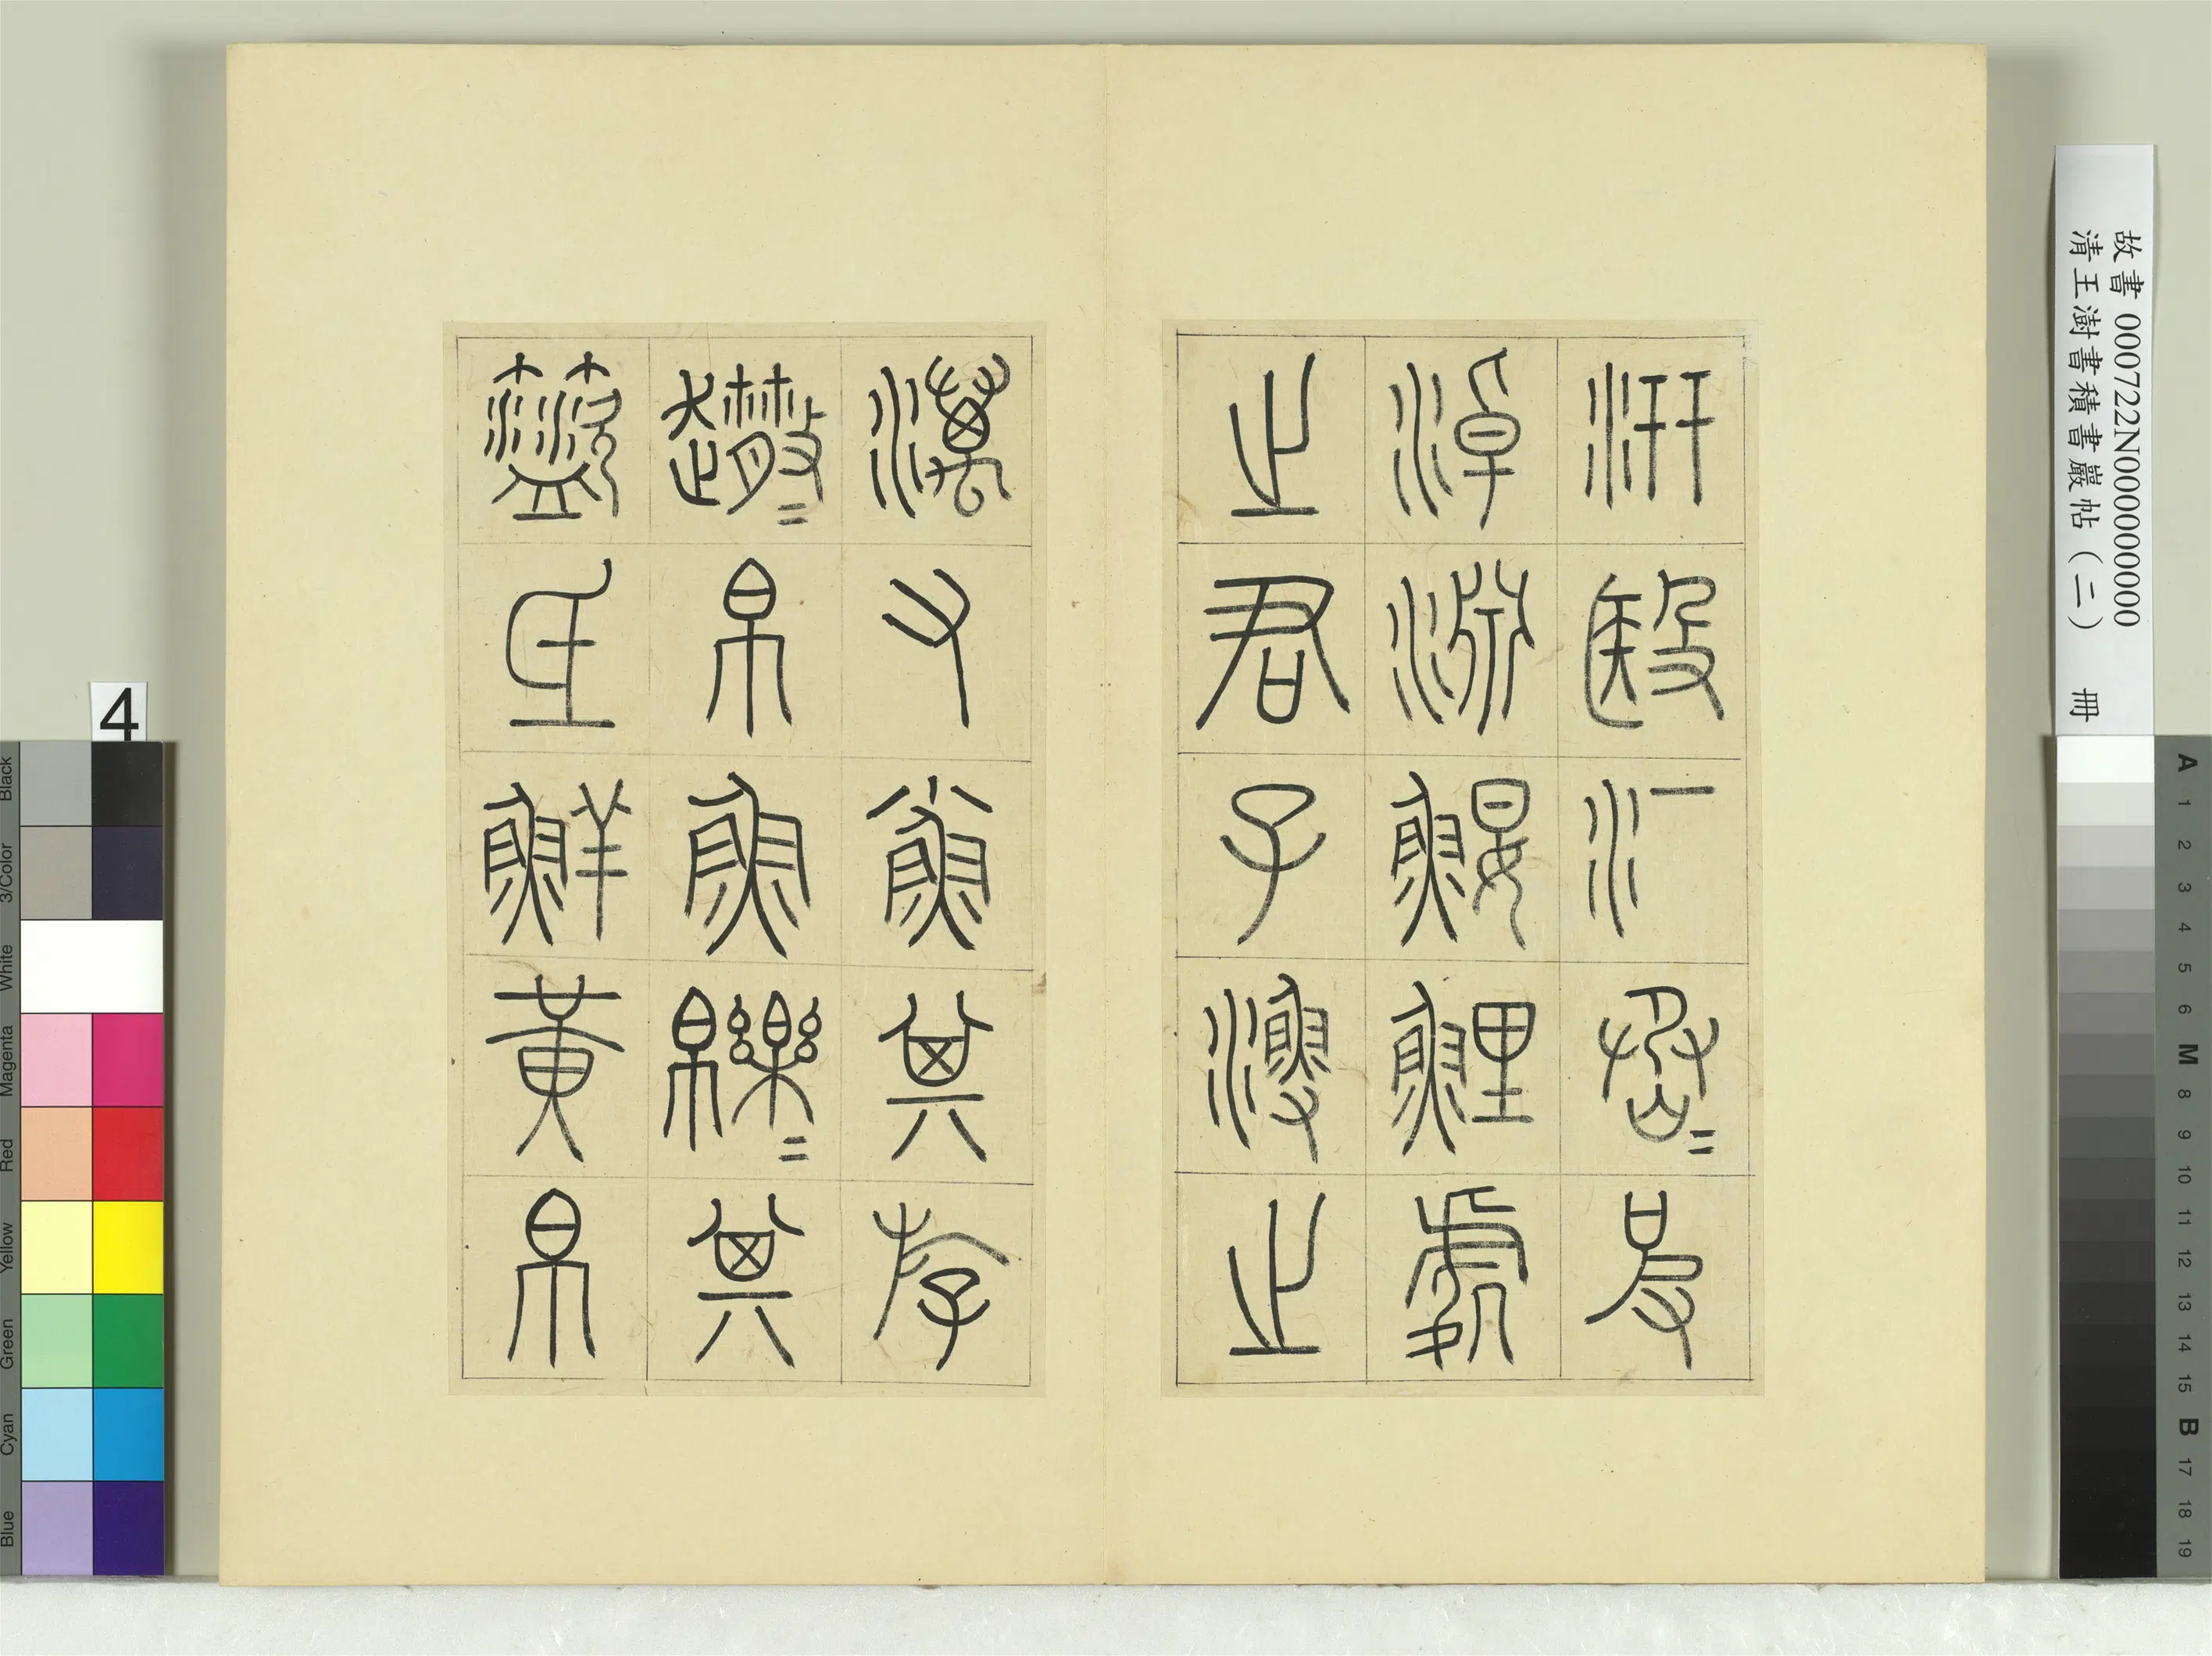 汧殹沔沔丞
淖淵鰋鯉處
止君子漁止
澫又小魚其斿
趩趩帛魚皪皪其
盜氐鮮黃帛
故書 000722N000000000
清王澍書積書巖帖（二） 冊
4
Black
3/Color
White
Magenta
Red
Yellow
Green
Cyan
Blue
A
1
2
3
4
5
6
M
8
9
10
11
12
13
14
15
B
17
18
19